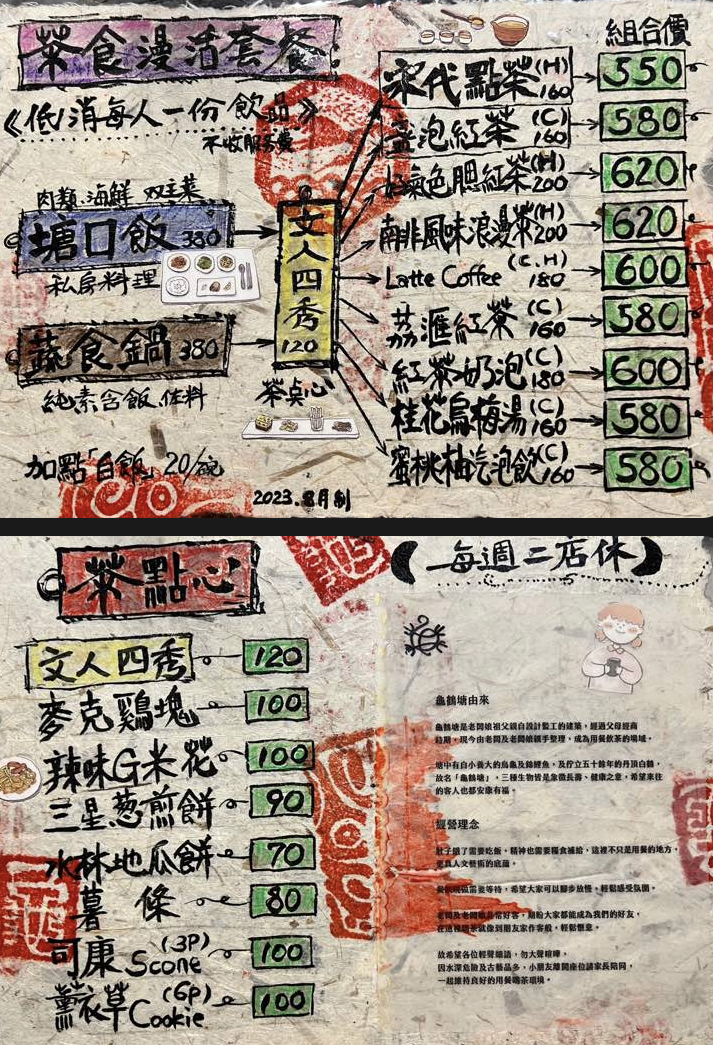 茶食漫活套餐
《低消每人一份飲品》
不收服務費
肉類.海鮮 双主菜
塘口飯 380
私房料理
蔬食鍋 380
純素含飯.佐料
加點「白飯」20/碗
文人四秀 120
茶桌心
2023.8月制
組合價
宋代點茶(H) 160 550
盞泡紅茶(C) 160 580
好氣色腮紅茶(H) 200 620
南非風味浪漫茶(H) 200 620
Latte Coffee (C.H) 180 600
荔滙紅茶(C) 160 580
紅茶奶泡(C) 180 600
桂花烏梅湯(C) 160 580
蜜桃柚汽泡飲(C) 160 580
茶點心
文人四秀 120
麥克鷄塊 100
辣味G米花 100
三星葱煎餅 90
水林地瓜餅 70
薯條 80
可康Scone (3P) 100
薰衣草Cookie (6P) 100
(每週二店休)
龜鶴塘由來
龜鶴塘是老闆娘祖父親自設計監工的建築，經過父母經商
時期，現今由老闆及老闆娘親手整理，成為用餐飲茶的場域。
塘中有自小養大的烏龜及錦鯉魚，及佇立五十餘年的丹頂白鶴，
故名「龜鶴塘」，三種生物皆是象徵長壽、健康之意，希望來往
的客人也都安康有福。
經營理念
肚子餓了需要吃飯，精神也需要糧食補給，這裡不只是用餐的地方，
更具人文藝術的底蘊。
餐飲現做需要等待，希望大家可以腳步放慢，輕鬆感受氛圍。
老闆及老闆娘非常好客，期盼大家都能成為我們的好友，
在這裡喝茶就像到朋友家作客般，輕鬆愜意。
故希望各位輕聲細語，勿大聲喧嘩，
因水深危險及古藝品多，小朋友離開座位請家長陪同，
一起維持良好的用餐喝茶環境。